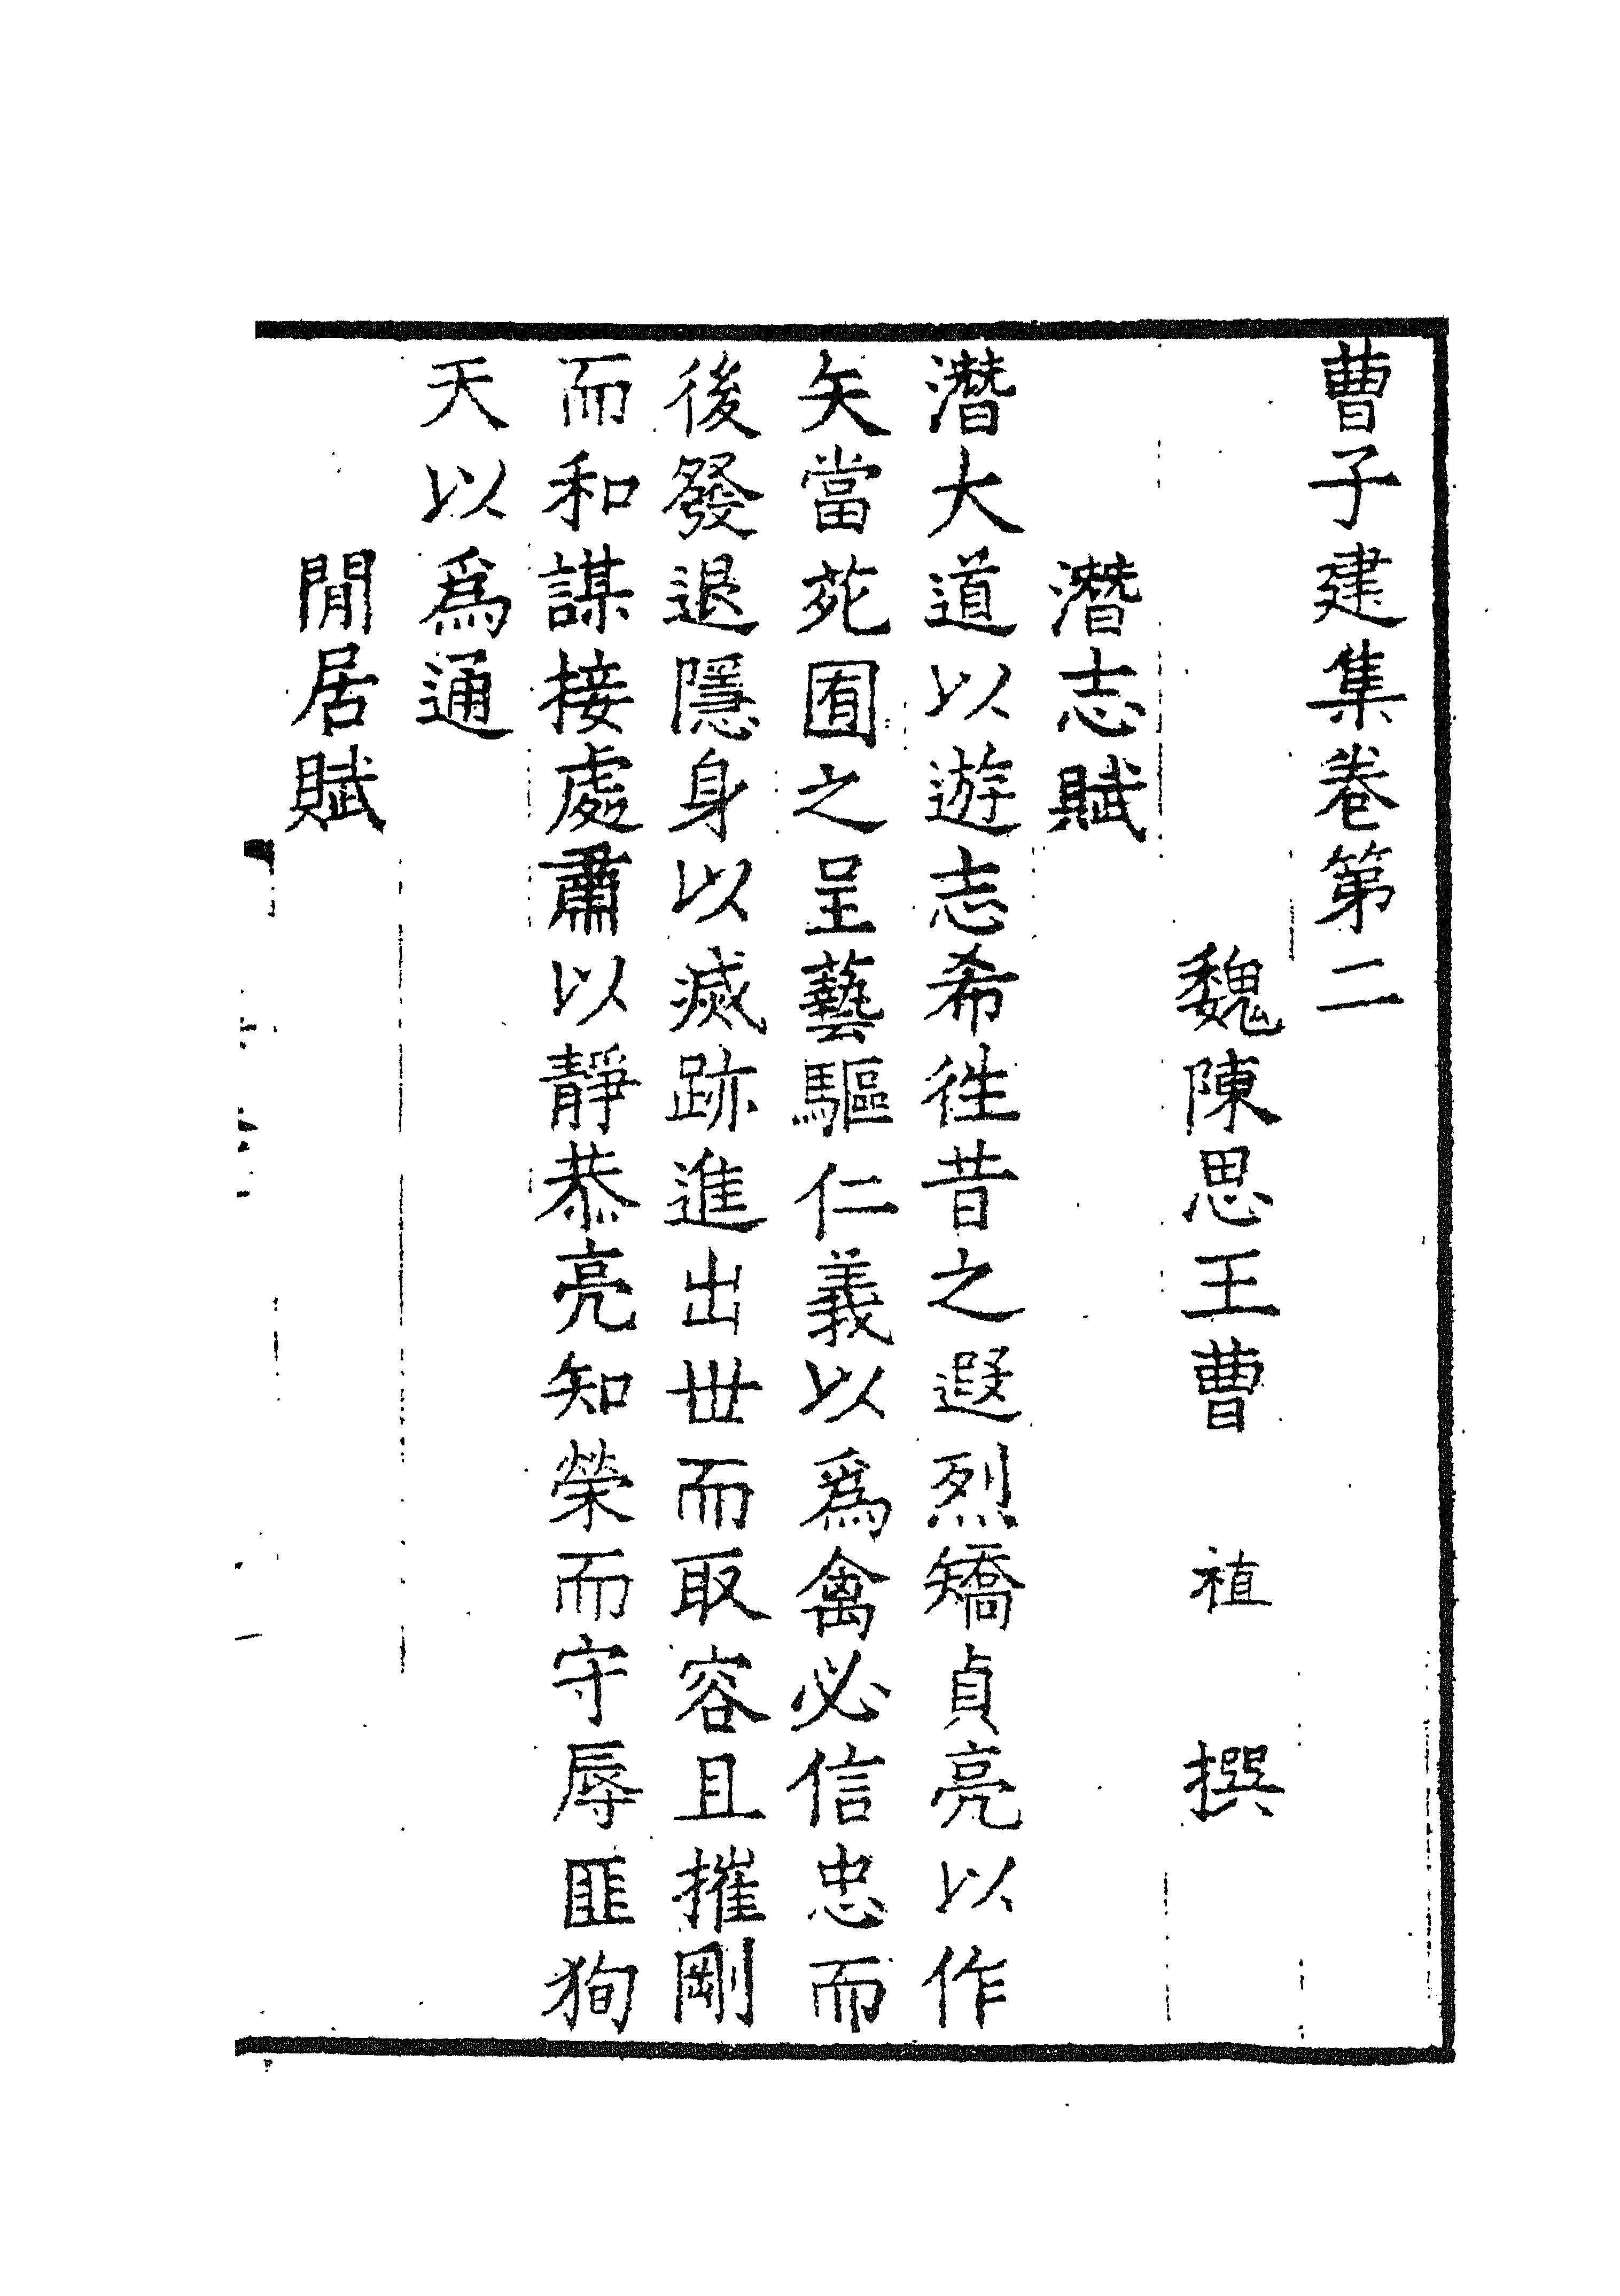 曹子建集卷第二
魏陳思王曹植撰
潛志賦
潛大道以遊志希徃昔之遐烈矯貞亮以作
矢當苑囿之呈藝驅仁義以爲禽必信忠而
後發退隱身以滅跡進出丗而取容且摧剛
而和謀接處肅以靜恭亮知榮而守辱匪狥
天以爲通
閒居賦